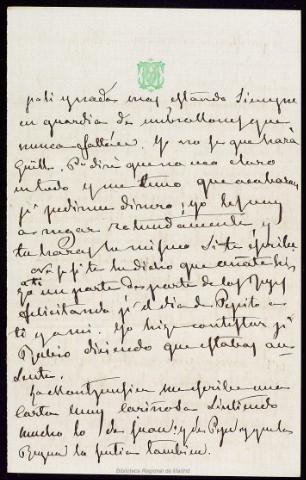 y estando siempre
en guardia de embrollones que
nunca faltan. Yo no se que hará
Güell. Te diré que no veo claro
en todo y me temo que acabaran
pr pedirme dinero; yo
a negar rotundamente y
tu haras lo mismo si te escribe
que anoche
un parte de parte de los Reyes
felicitando pr el dia de Pepito a
ti y a mi. Yo hize contestar pr
Rubio diciendo que estabas au-
sente.
La Montpensier me escribe una
carta muy cariñosa sintiendo
mucho lo de Juan y de Pepe y que la
Reyna la sentia tambien.
Biblioteca Regional de Madrid